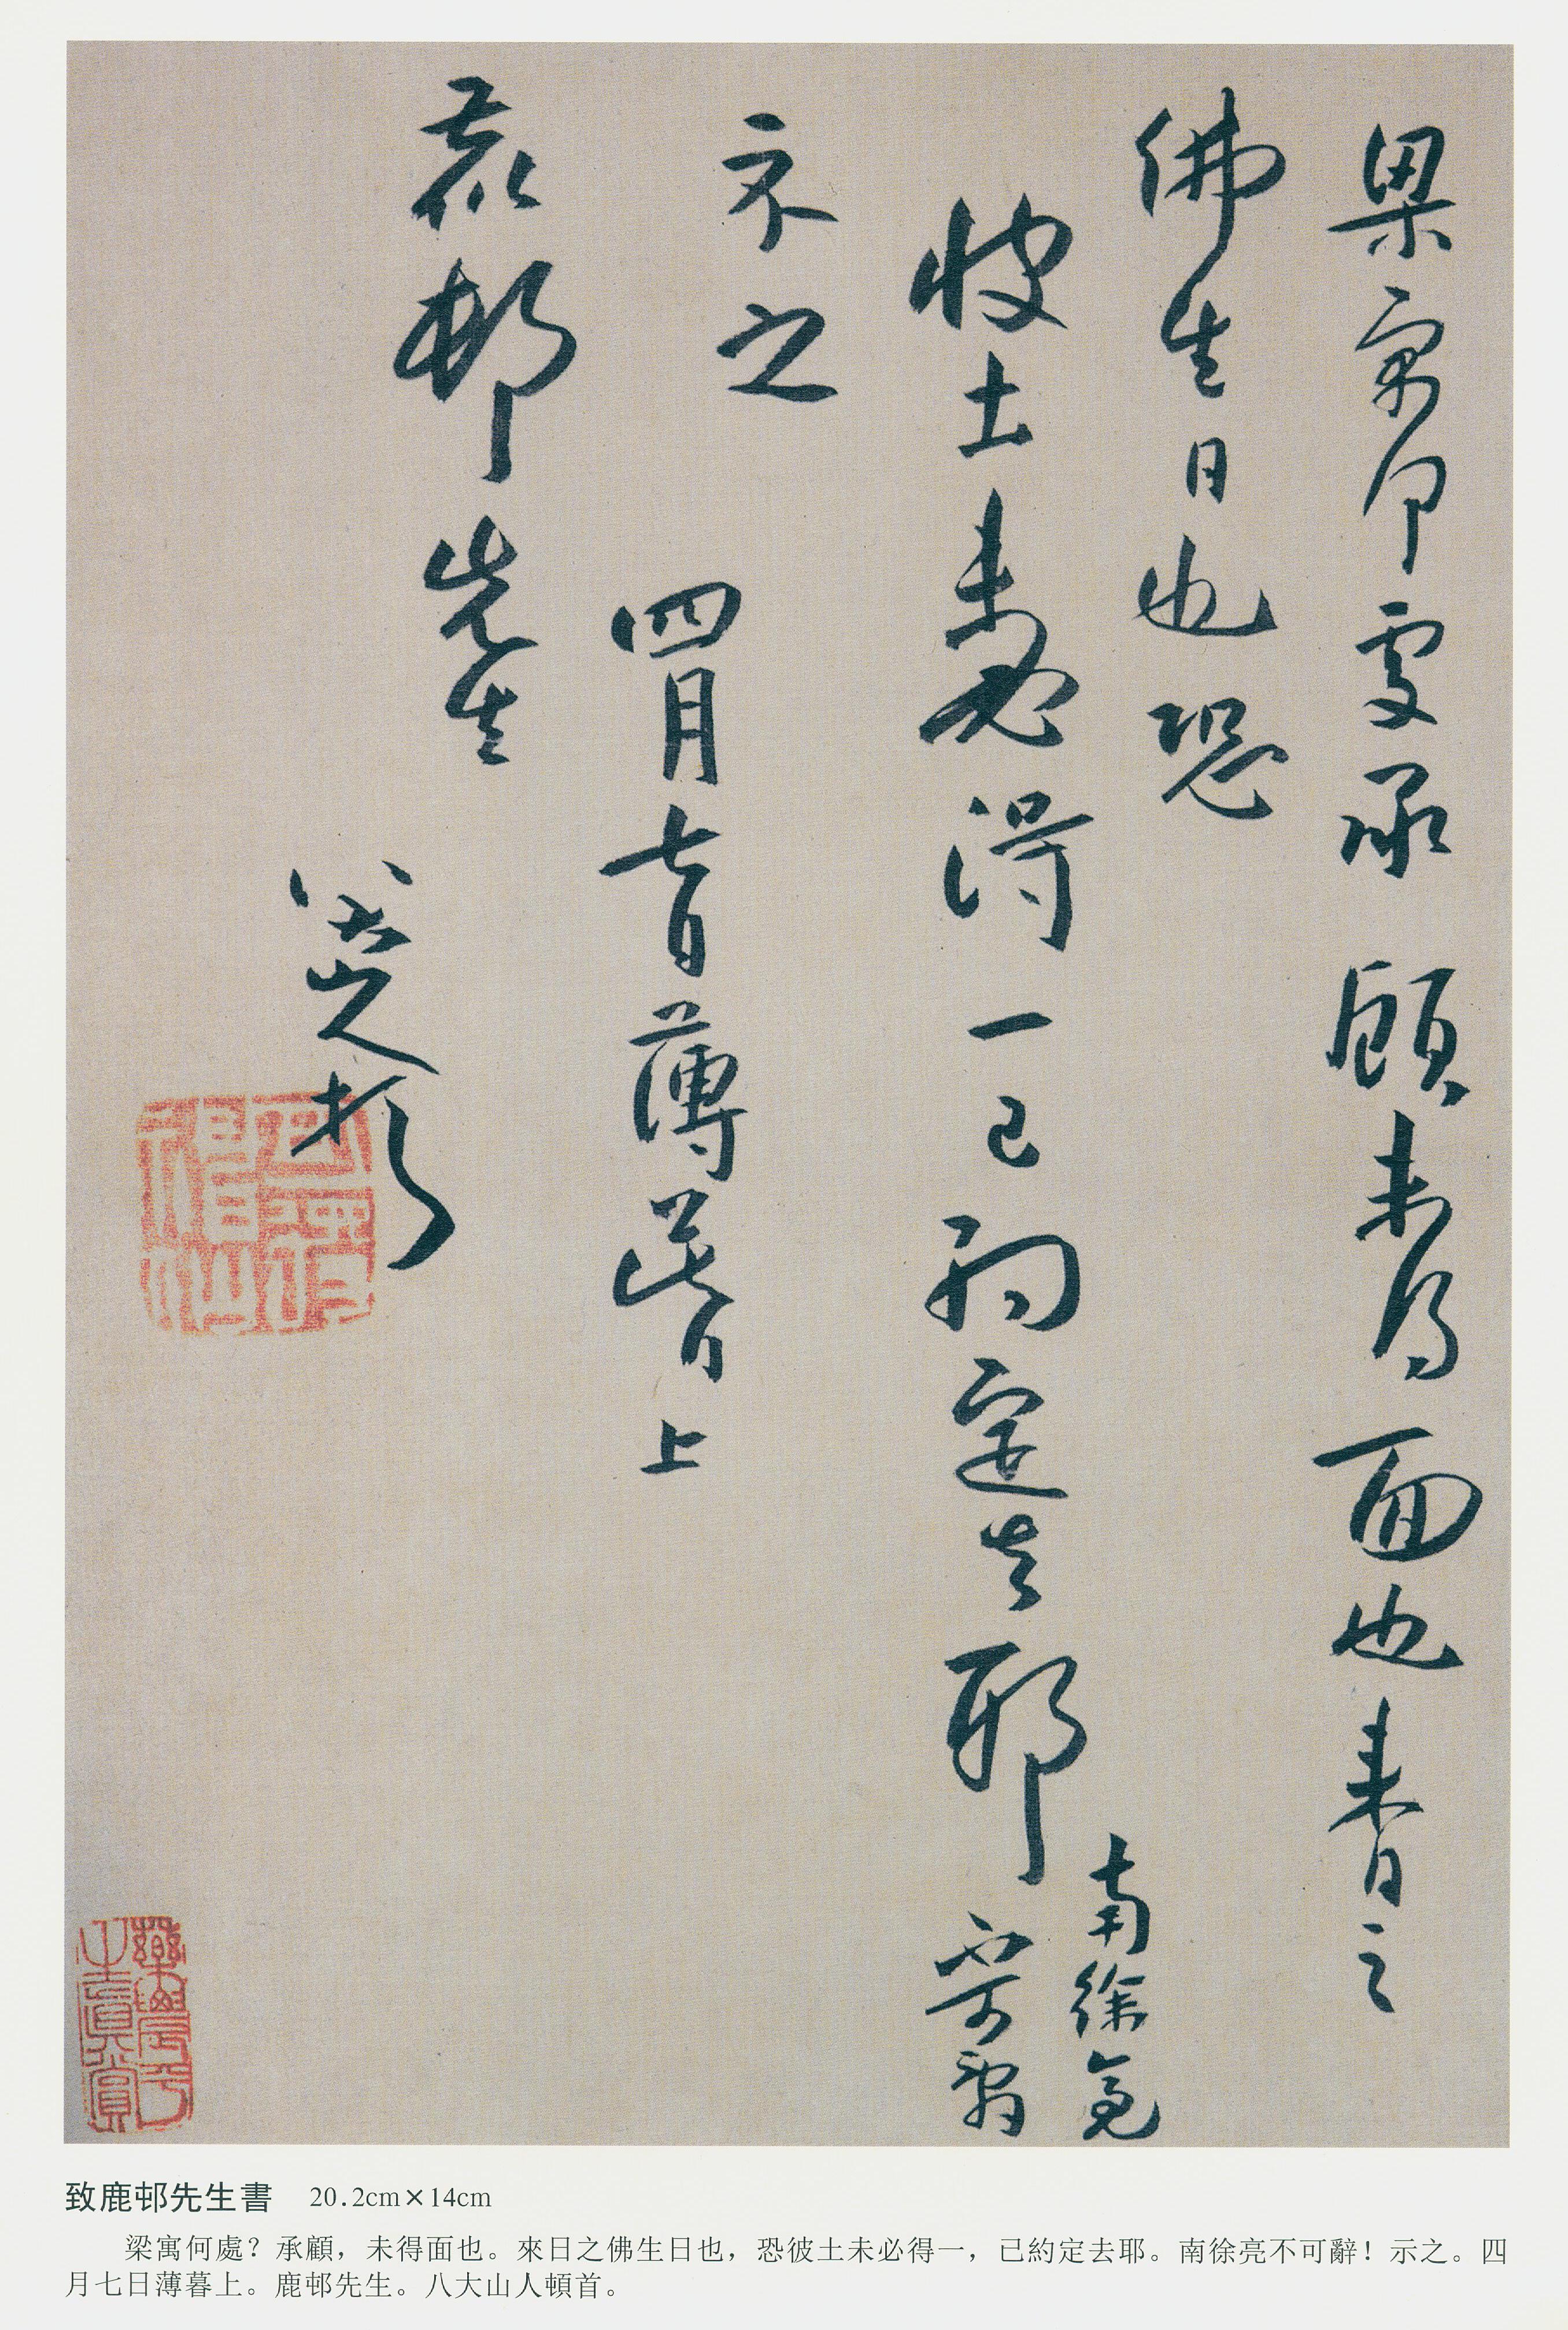 梁寓何處承顧未得面也來日之
佛生日也恐
彼土未必得一已約定去耶南徐亮
不可辭
示之
四月七日薄暮上
鹿邨先生
八大山人頓首
真賞
致鹿邨先生書 20.2cm×14cm
梁寓何處？承顧，未得面也。來日之佛生日也，恐彼土未必得一，已約定去耶。南徐亮不可辭！示之。四
月七日薄暮上。鹿邨先生。八大山人頓首。